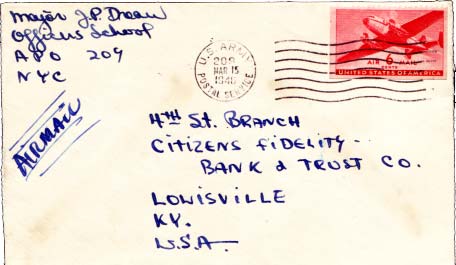 Major J.P. Doean
Officers School
APO 209
NYC
AIRMAIL
U.S. ARMY
209
MAR 15
POSTAL SERVICE
AIR 6 MAIL
CENTS
UNITED STATES OF AMERICA
4TH St. BRANCH
CITIZENS FIDELITY
BANK & TRUST CO.
LOUISVILLE
KY.
U.S.A.